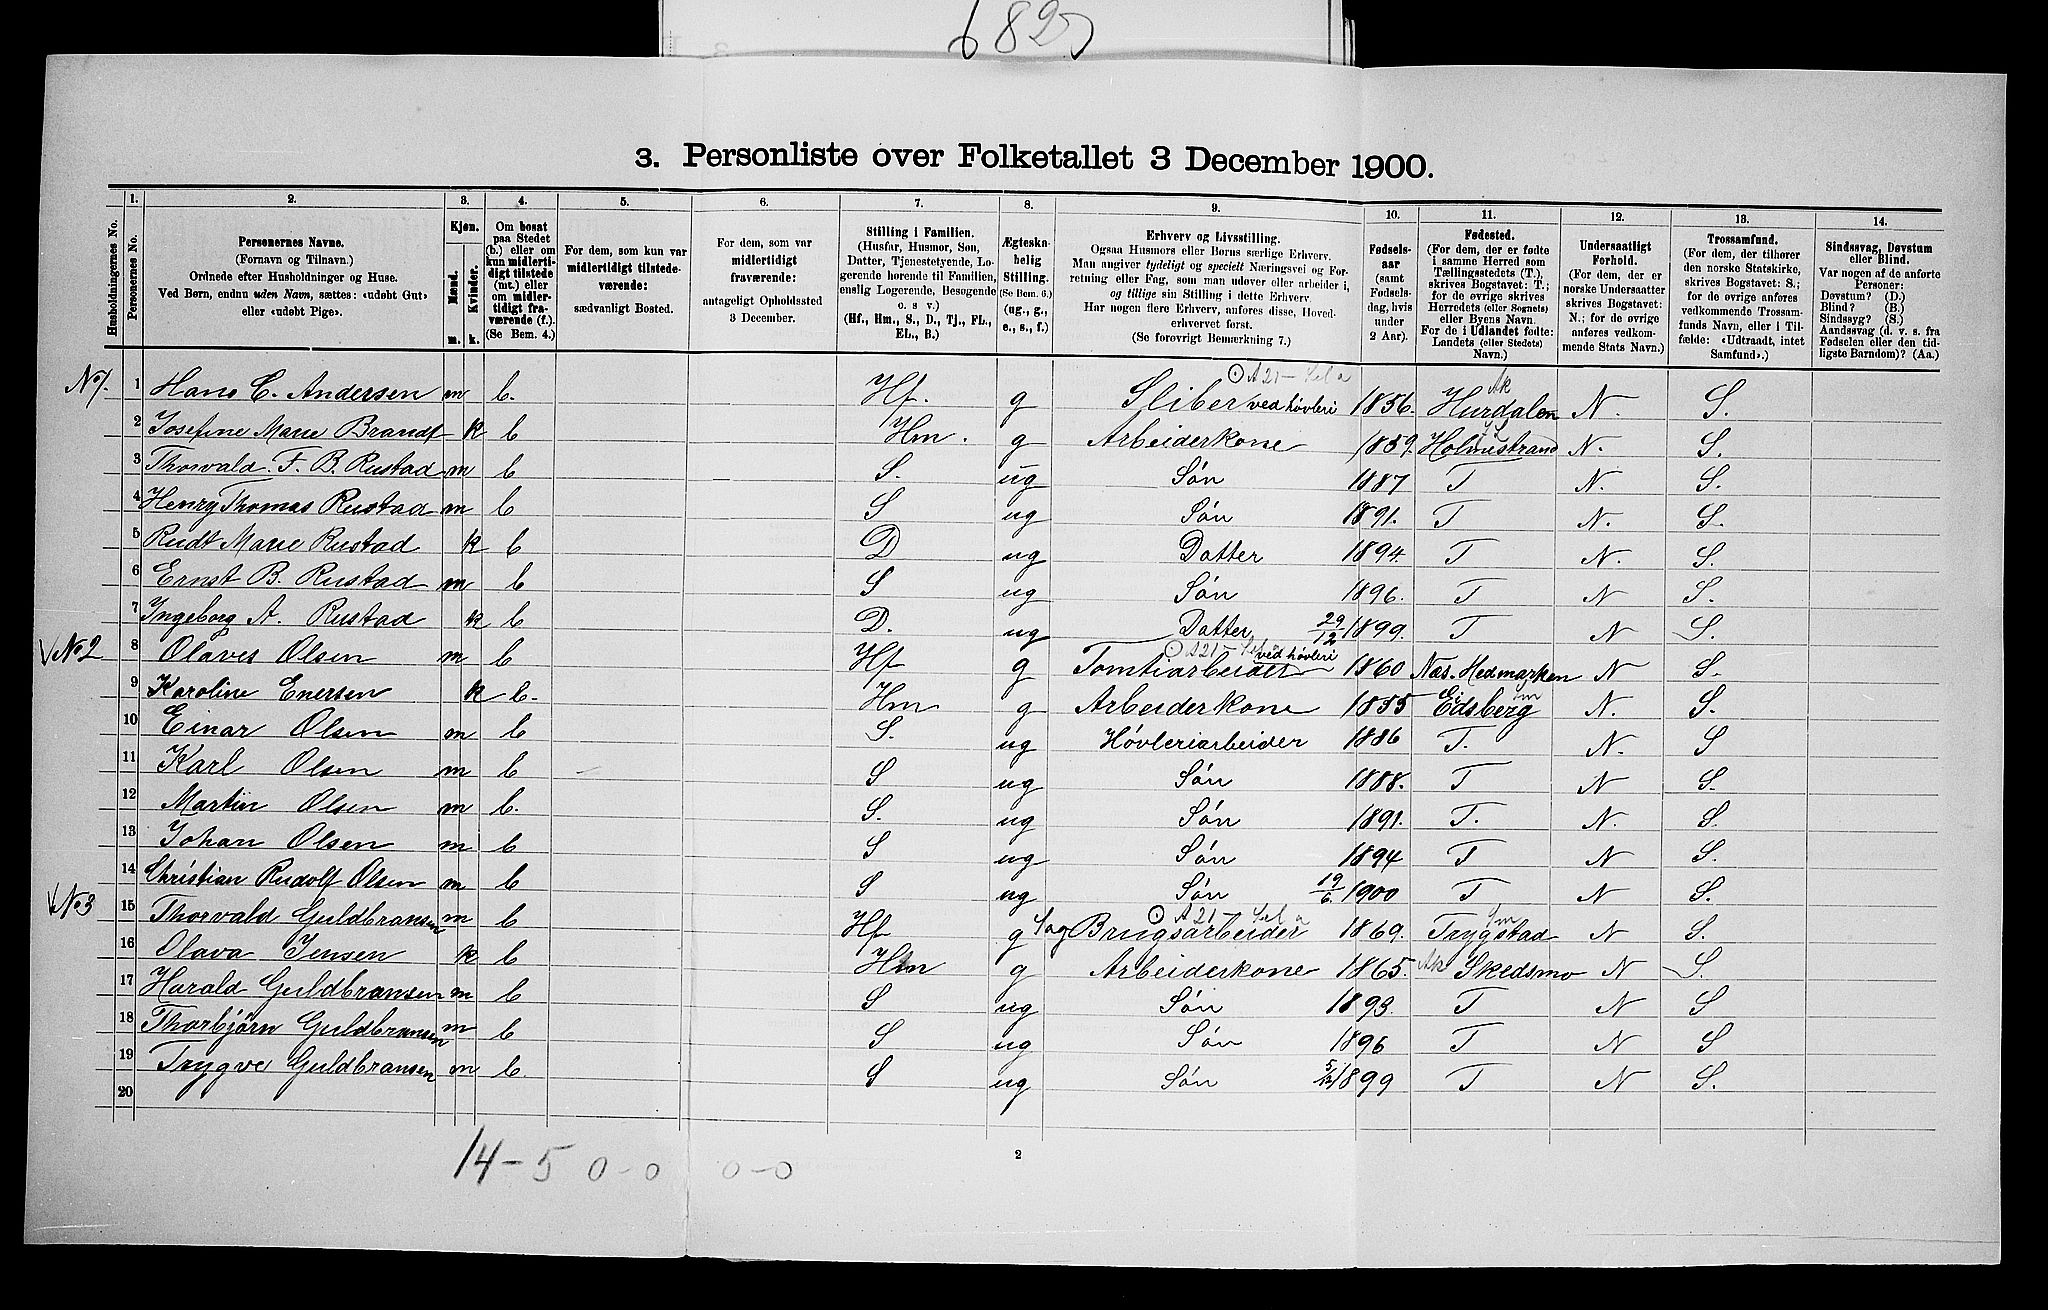 6829
3. Personliste over Folketallet 3 December 1900.
Husholdningernes No.
1. Personernes No.
2. Personernes Navne. (Fornavn og Tilnavn.) Ordnede efter Husholdninger og Huse. Ved Børn, endnu uden Navn, sættes: «udøbt Gut» eller «udøbt Pige».
3. Kjøn. Mænd. m. Kvinder. k.
4. Om bosat paa Stedet (b.) eller om kun midlertidigt tilstede (mt.) eller om midlertidigt fraværende (f.). (Se Bem. 4.)
5. For dem, som kun var midlertidigt tilstedeværende: sædvanligt Bosted.
6. For dem, som var midlertidigt fraværende: antageligt Opholdssted 3 December.
7. Stilling i Familien. (Husfar, Husmor, Søn, Datter, Tjenestetyende, Logerende hørende til Familien, enslig Logerende, Besøgende o. s v.) (Hf., Hm., S., D., Tj., FL., EL., B.)
8. Ægteskabelig Stilling. (Se Bem. 6.) (ug., g., e., s., f.)
9. Erhverv og Livsstilling. Ogsaa Husmors eller Børns særlige Erhverv. Man angiver tydeligt og specielt Næringsvei og Forretning eller Fag, som man udøver eller arbeider i, og tillige sin Stilling i dette Erhverv. Har nogen flere Erhverv, anføres disse, Hovederhvervet først. (Se forøvrigt Bemærkning 7.)
10. Fødselsaar (samt Fødselsdag, hvis under 2 Aar).
11. Fødested. (For dem, der er fødte i samme Herred som Tællingsstedets (T.), skrives Bogstavet: T.; for de øvrige skrives Herredets (eller Sognets) eller Byens Navn. For de i Udlandet fødte: Landets (eller Stedets) Navn.)
12. Undersaatligt Forhold. (For dem, der er norske Undersaatter skrives Bogstavet: N.; for de øvrige anføres vedkommende Stats Navn.)
13. Trossamfund. (For dem, der tilhører den norske Statskirke, skrives Bogstavet: S.; for de øvrige anføres vedkommende Trossamfunds Navn, eller i Tilfælde: «Udtraadt, intet Samfund».)
14. Sindssvag, Døvstum eller Blind. Var nogen af de anførte Personer: Døvstum? (D.) Blind? (B.) Sindssyg? (S.) Aandssvag (d. v. s. fra Fødselen eller den tidligste Barndom)? (Aa.)
No 1. 1 Hans C. Andersen m b. Hf. g Sliber ved høvleri 1856. Hurdalen Ak N. S.
2 Josefine Marie Brandt k b Hm. g Arbeiderkone 1859. Holmestrand N. S.
3 Thorvald. F. B. Rustad m b S. ug Søn 1887 T N. S.
4 Henry Thomas Rustad m b S ug Søn 1891. T N. S.
5 Rudt Marie Rustad k b D ug Datter 1894. T N. S.
6 Ernst B. Rustad m b S ug Søn 1896. T N S.
7 Ingeborg A. Rustad k b D. ug Datter 29/12 1899. T N S.
No 2 8 Olaves Olsen m b Hf g Tomtiarbeider ved høvleri 1860 Næs. Hedmarken N S.
9 Karoline Enersen k b. Hm g Arbeiderkone 1855 Eidsberg N. S.
10 Einar Olsen m b S. ug Høvleriarbeider 1886 T. N. S
11 Karl Olsen m b S ug Søn 1888. T N S.
12 Martin Olsen m b. S. ug Søn 1891. T. N. S.
13 Johan Olsen m b S ug Søn 1894 T N S.
14 Christian Rudolf Olsen m b S ug Søn 19/6 1900 T N S.
No 3 15 Thorvald Guldbransen m b Hf g Brugsarbeider 1869. Trygstad N S.
16 Olava Jensen k b Hm g Arbeiderkone 1865. Ak Skedsmo N S.
17 Harald Guldbransen m b S ug Søn 1893. T N S
18 Thorbjørn Guldbransen m b S ug Søn 1896 T N S
19 Trygve Guldbransen m b. S ug Søn 5/12 1899 T N S.
20
14-5 0-0 0-0
2